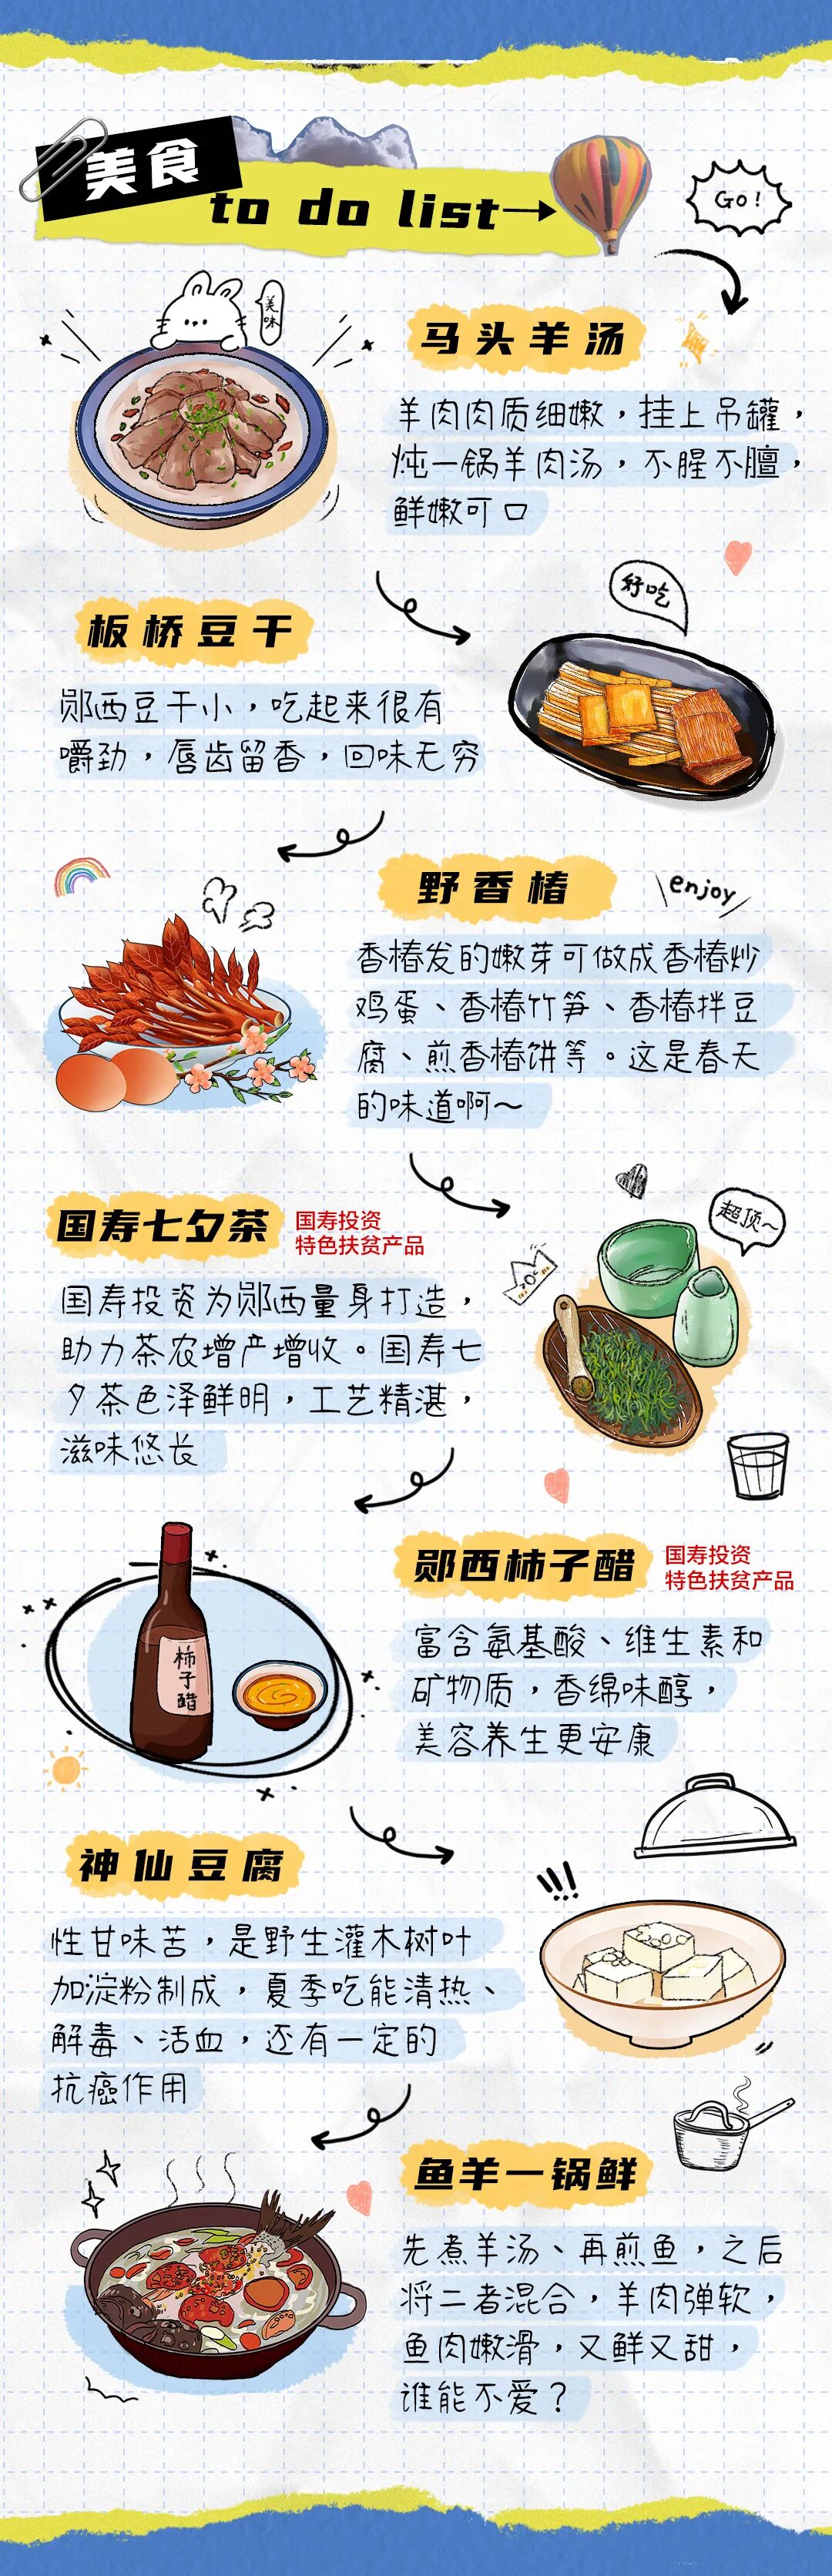 美食
to do list
Go!
美味
马头羊汤
羊肉肉质细嫩，挂上吊罐，
炖一锅羊肉汤，不腥不膻，
鲜嫩可口
好吃
板桥豆干
郧西豆干小，吃起来很有
嚼劲，唇齿留香，回味无穷
野香椿
enjoy
香椿发的嫩芽可做成香椿炒
鸡蛋、香椿竹笋、香椿拌豆
腐、煎香椿饼等。这是春天
的味道啊～
国寿七夕茶
国寿投资
特色扶贫产品
超顶~
国寿投资为郧西量身打造，
助力茶农增产增收。国寿七
夕茶色泽鲜明，工艺精湛，
滋味悠长
郧西柿子醋
国寿投资
特色扶贫产品
柿子醋
富含氨基酸、维生素和
矿物质，香绵味醇，
美容养生更安康
神仙豆腐
性甘味苦，是野生灌木树叶
加淀粉制成，夏季吃能清热、
解毒、活血，还有一定的
抗癌作用
鱼羊一锅鲜
先煮羊汤、再煎鱼，之后
将二者混合，羊肉弹软，
鱼肉嫩滑，又鲜又甜，
谁能不爱？